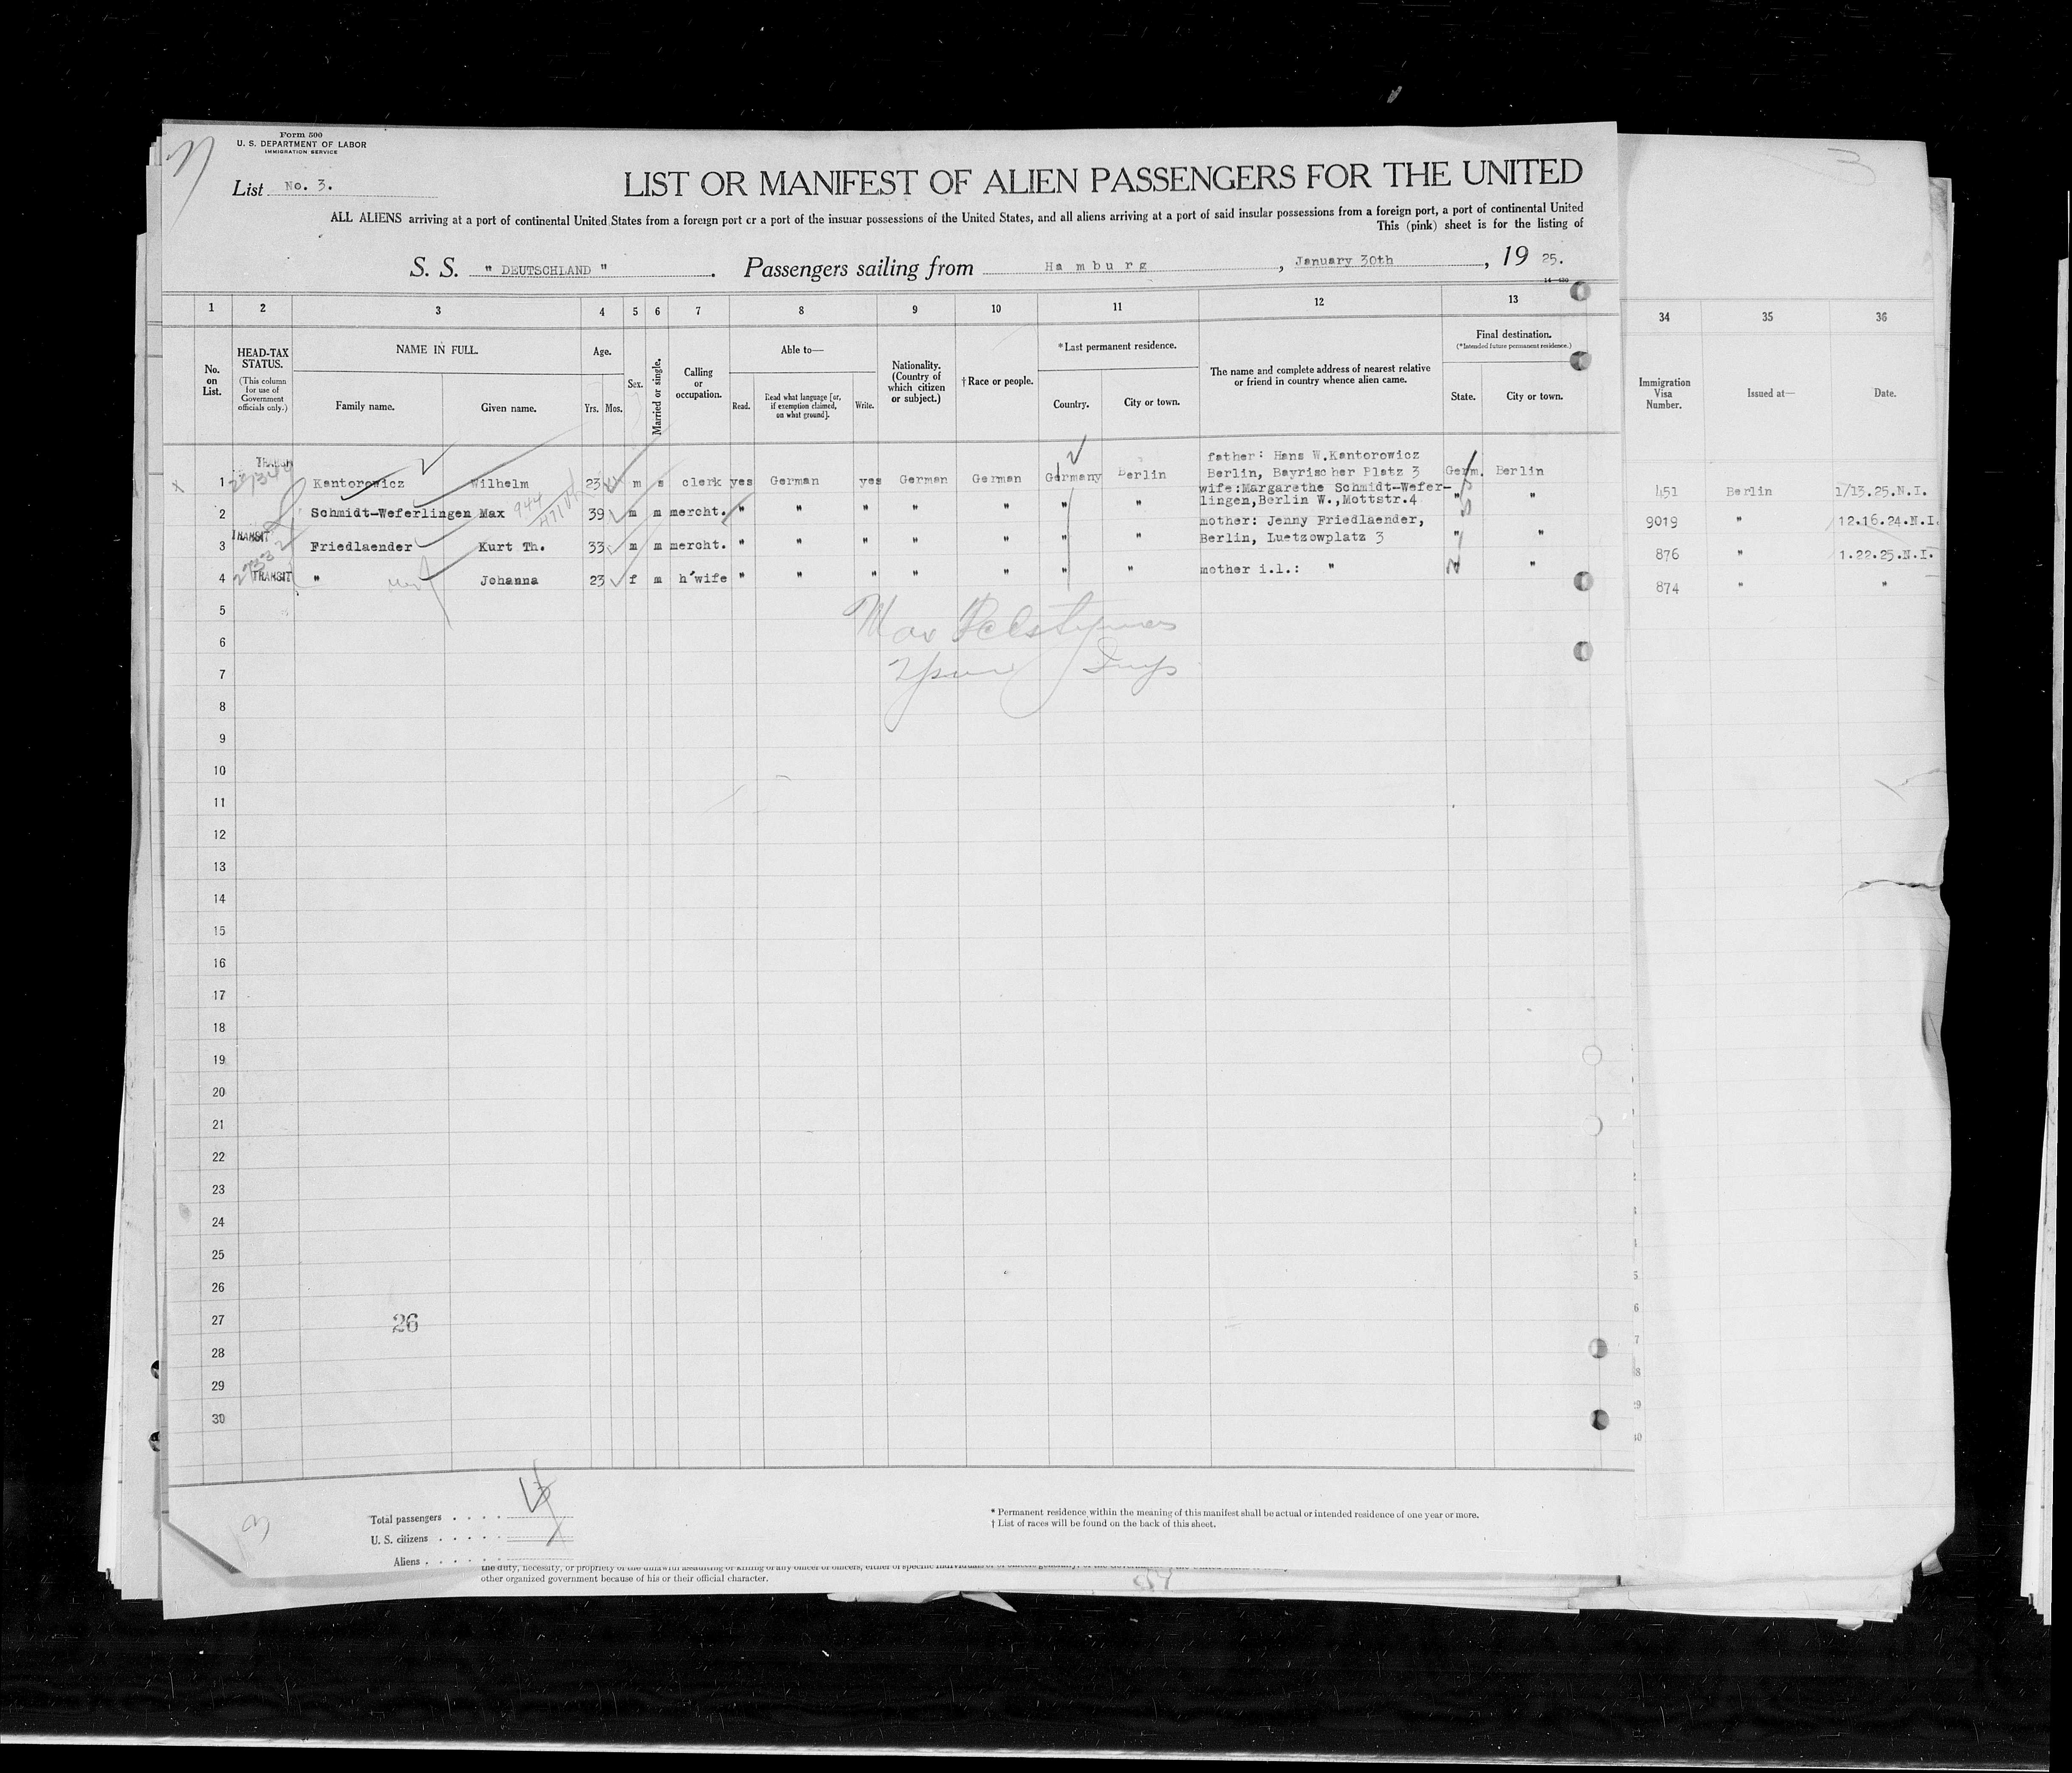 Form 500
U. S. DEPARTMENT OF LABOR
IMMIGRATION SERVICE
List No. 3.
LIST OR MANIFEST OF ALIEN PASSENGERS FOR THE UNITED
ALL ALIENS arriving at a port of continental United States from a foreign port or a port of the insular possessions of the United States, and all aliens arriving at a port of said insular possessions from a foreign port, a port of continental United
This (pink) sheet is for the listing of
S. S. " DEUTSCHLAND " . Passengers sailing from Hamburg , January 30th , 19 25.
1 2 3 4 5 6 7 8 9 10 11 12 13 34 35 36
No. on List.
HEAD-TAX STATUS.
(This column for use of Government officials only.)
NAME IN FULL.
Family name. Given name.
Age.
Yrs. Mos.
Sex.
Married or single.
Calling or occupation.
Able to—
Read. Read what language [or, if exemption claimed, on what ground]. Write.
Nationality. (Country of which citizen or subject.)
†Race or people.
*Last permanent residence.
Country. City or town.
The name and complete address of nearest relative or friend in country whence alien came.
Final destination.
(*Intended future permanent residence.)
State. City or town.
Immigration Visa Number.
Issued at—
Date.
TRANSIT
father: Hans W.Kantorowicz
1 Kantorowicz Wilhelm 23 m s clerk yes German yes German German Germany Berlin Berlin, Bayrischer Platz 3 Germ. Berlin 451 Berlin 1/13.25.N.I.
wife:Margarethe Schmidt-Wefer-
2 Schmidt-Weferlingen Max 39 m m mercht. " " " " " " " lingen,Berlin W.,Mottstr.4 " " 9019 " 12.16.24.N.I.
mother: Jenny Friedlaender,
TRANSIT
3 Friedlaender Kurt Th. 33 m m mercht. " " " " " " " Berlin, Luetzowplatz 3 " " 876 " 1.22.25.N.I.
4 TRANSIT " Johanna 23 f m h'wife " " " " " " " mother i.l.: " " " 874 " "
5
6
7
8
9
10
11
12
13
14
15
16
17
18
19
20
21
22
23
24
25
26
27 26
28
29
30
Total passengers . . . . .
U. S. citizens . . . . .
Aliens . . . . . .
* Permanent residence within the meaning of this manifest shall be actual or intended residence of one year or more.
† List of races will be found on the back of this sheet.
other organized government because of his or their official character.